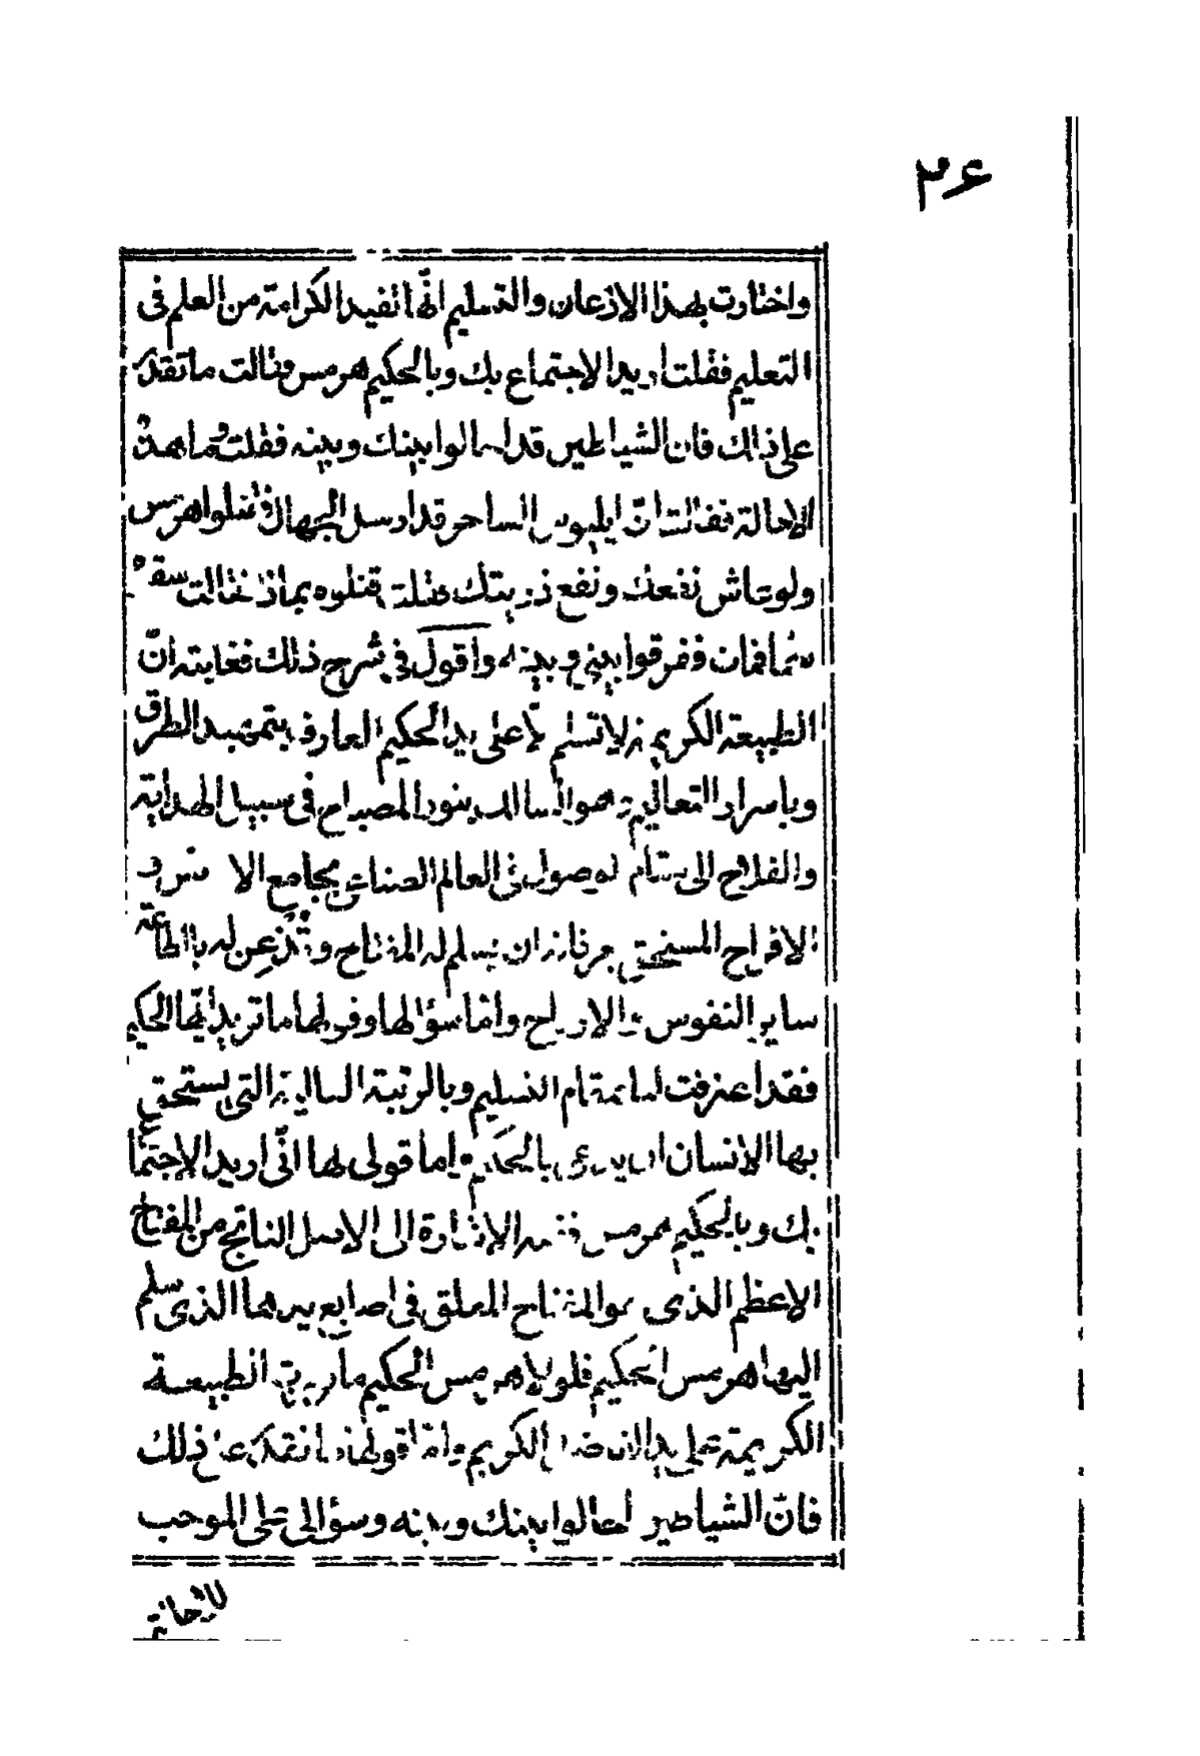 ٢۶
واختارت بهذا الاذعان والتسليم انّها تفيد الكرامة من العلم فى
التعليم فقلت اريد الاجتماع بك وبالحكيم هرمس فقالت ما تقدر
على ذلك فان الشياطين قد احالوا بينك وبينه فقلت وما هذه
الاحالة فقالت انّ ايليوس الساحر قد ارسل الجهال فقتلوا هرمس
ولو عاش نفعك ونفع ذريتك فقلت قتلوه بماذا فقالت سقوه
سمّا فمات ففرقوا بينى وبينه واقول فى شرح ذلك فغايته انّ
الطبيعة الكريمة لا تسلم الّا على يد الحكيم العارف بتمهيد الطرق
وباسرار التعاليم وهو السالك بنور المصباح فى سبيل الهداية
والفلاح الى مقام الوصول فى العالم الصناعى بجامع الا
الافراح المستحق ان يسلم له المفتاح وتذعن له بالطاعة
ساير النفوس والارواح وامّا سؤالها وقولها ما تريد ايّها الحكيم
فقد اعترفت لنا بمقام التسليم وبالرتبة العالية التى يستحق
بها الانسان ان يدعى بالحكيم واما قولى لها انّى اريد الاجتماع
بك وبالحكيم هرمس ففيه الاشارة الى الاصل الناتج من المفتاح
الاعظم الذى هو المفتاح المعلق فى اصابع يدها الذى سلم
اليها هرمس الحكيم فلولا هرمس الحكيم ما الطبيعة
الكريمة على يد الكريم وامّا قولها ما تقدر على ذلك
فانّ الشياطين احالوا بينك وبينه وسؤالى على الموجب
للاحالة